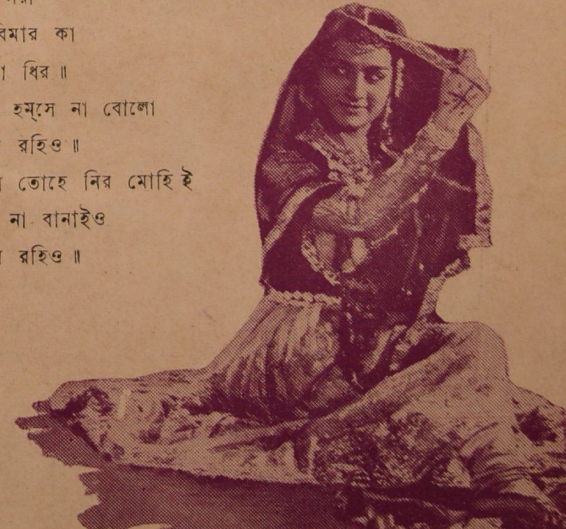 বিমার কা
ধির ॥
হম্‌সে না বোলো
রহিও ॥
তোহে নির মোহি ই
না বানাইও
রহিও ॥